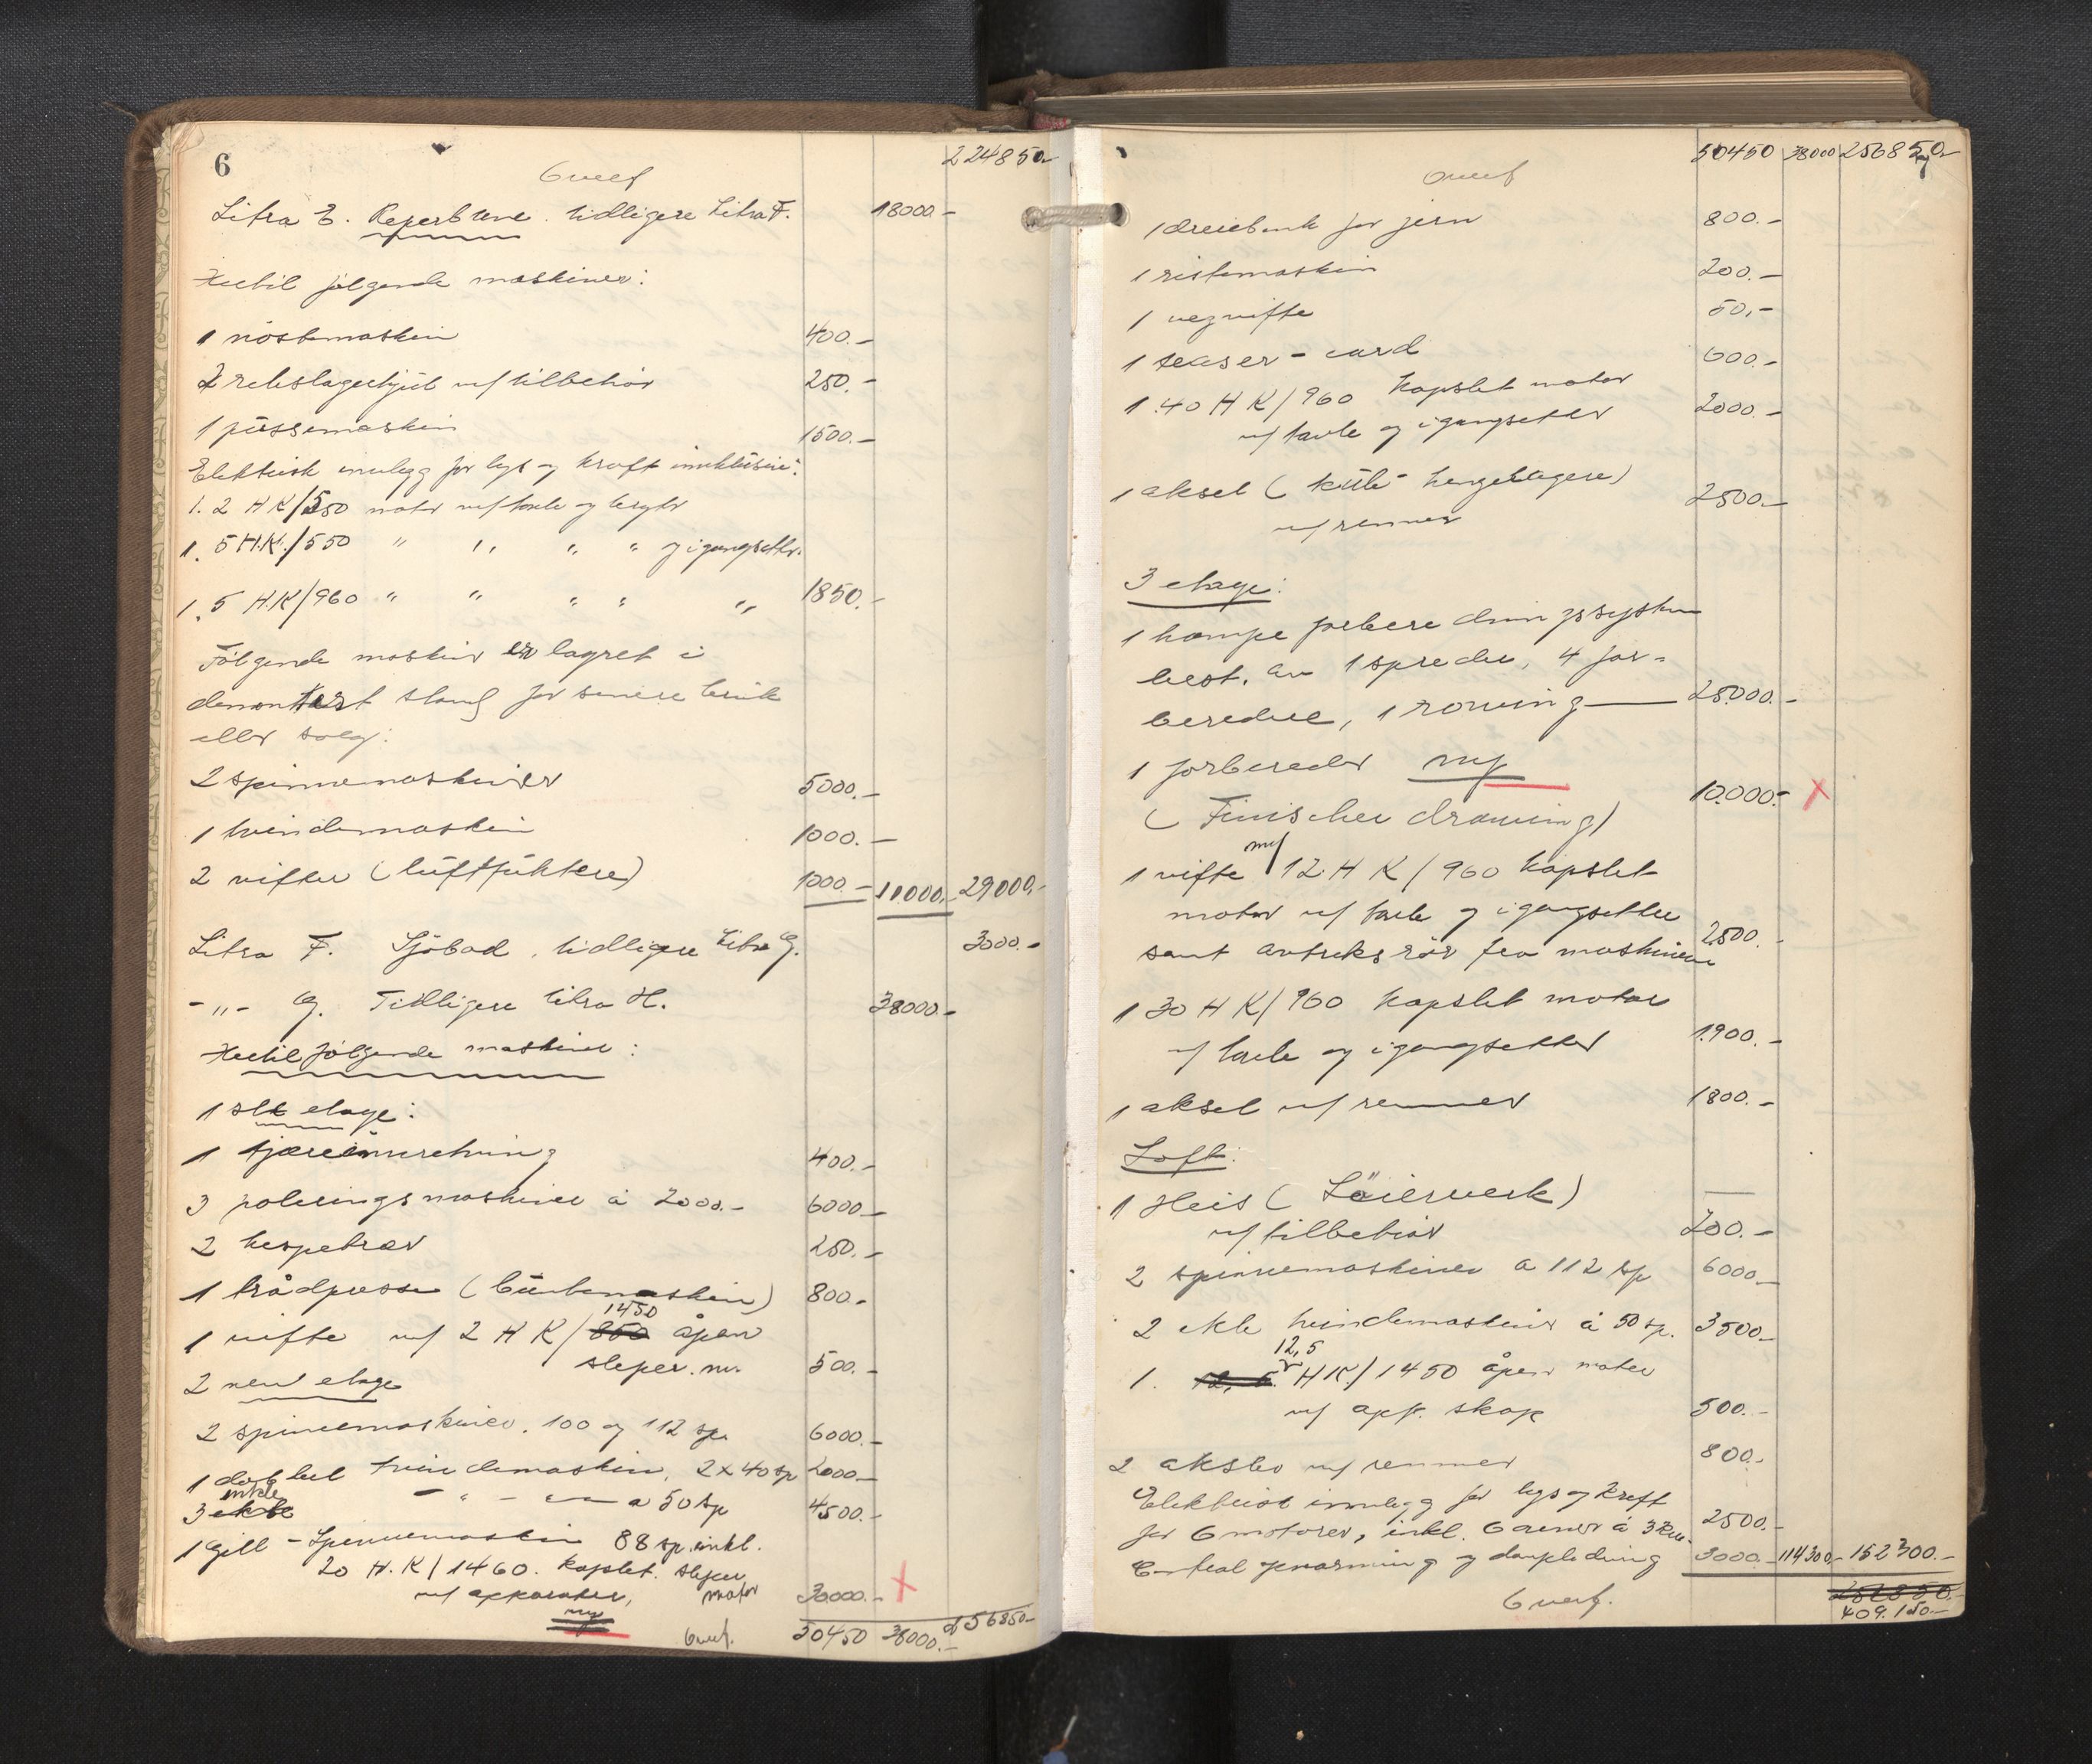 6
224850.-
Overf
Litra E. Reperbane. tidligere Litra F. 18000.-
Hertil følgende maskiner:
1 nöstemaskin 400.-
2 rebslagerhjul m/ tilbehør 250.-
1 pussemaskin 1500.-
Elektrisk innlegg for lys og kraft innklusive:
1. 2 HK/550 motor m/ tavle og bryter
1. 5 H.K./550 " " " " og igangsetter.
1. 5 H.K/960 " " " " " 1850.-
Følgende maskiner er lagret i
demontert stand for senere bruk
eller salg:
2 spinnemaskiner 5000.-
1 tvindemaskin 1000.-
2 vifter (luftfuktere) 1000.- 11000.- 29000.-
Litra F. Sjöbod, tidligere Litra G. 3000.-
-"- G. Tidligere Litra H. 38000.-
Hertil følgende maskiner:
1ste etage:
1 tjæreinnretning 400.-
3 poleringsmaskiner á 2000.- 6000.-
2 hespetrær 250.-
1 trådpresse (buntemaskin) 800.-
1450
1 vifte m/ 2 H K/850 åpen
sleper. m. 500.-
2nen etage
2 spinnemaskiner. 100 og 112 sp. 6000.-
1 dobbel tvindemaskin. 2x40 sp 2000.-
enkle
3 ekle - " - a 50 sp 4500.-
1 Gill - Spinnemaskin 88 sp. inkl.
20 H.K/1460. kapslet. sleper
m/ apparater, motor 30000.- X
ny
Overf. 50450 38000.- 256850.-
50450 38000 256850.-
7
Overf
1 dreiebenk for jern 800.-
1 ristemaskin 200.-
1 vegvifte 50.-
1 teaser - card 600.-
1 40 H K/960 kapslet motor
m/ tavle og igangsetter 2000.-
1 aksel (kule-hengelagere)
m/ remmer 2500.-
3 etage:
1 hampe forberedningssystem
best. av 1 spreder, 4 for-
beredere, 1 roving 25000.-
1 forbereder ny
10.000.- X
(Finisher drawing)
m/
1 vifte 12 H K/960 kapslet
motor m/ tavle og igangsetter
samt avtreksrör fra maskinene 2500.-
1 30 H K/960 kapslet motor
m/ tavle og igangsetter 1900.-
1 aksel m/ remmer 1800.-
Loft:
1 Heis (Löierverk)
m/ tilbehör 700.-
2 spinnemaskiner a 112 sp 6000.-
2 ekle tvindemaskiner á 50 sp. 3500.-
12,5
1. 12,5 HK/1450 åpen motor
m/ app. skap 500.-
2 aksler m/ remmer 800.-
Elektrisk innlegg for lys og kraft
for 6 motorer, inkl. 6 ovner á 3 kw. 2500.-
Sentral opvarming og dampledning 3000.- 114300.- 152300.-
Overf. 409.150.-